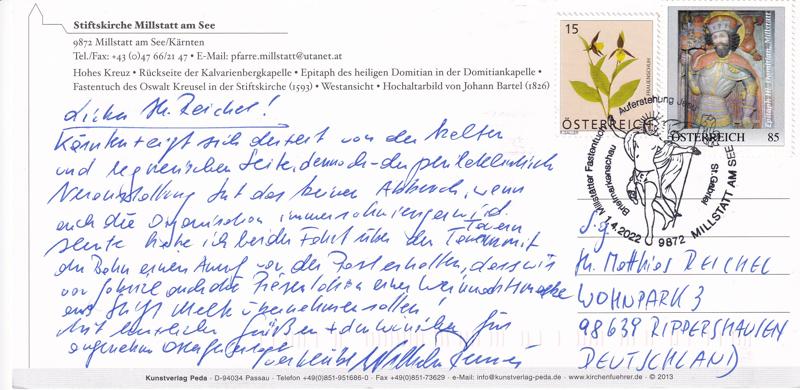 Stiftskirche Millstatt am See
9872 Millstatt am See/Kärnten
Tel./Fax: +43 (0)47 66/21 47 • E-Mail: pfarre.millstatt@utanet.at
Hohes Kreuz • Rückseite der Kalvarienbergkapelle • Epitaph des heiligen Domitian in der Domitiankapelle •
Fastentuch des Oswalt Kreusel in der Stiftskirche (1593) • Westansicht • Hochaltarbild von Johann Bartel (1826)
Lieber Hr. Reichel!
Kärnten zeigt sich derzeit von der kalten
und regnerischen Seite, dennoch der philatelistischen
Veranstaltung tut das keinen Abbruch, wenn
auch die Organisation immer schwieriger wird.
Heute habe ich bei der Fahrt über den Tauern mit
der Bahn einen Anruf von der Post erhalten, dass wir
vor Jahre auch die Präsentation einer Weihnachtsmarke
aus Stift Melk übernehmen sollen!
Mit herzlichen Grüßen + den Wünschen für
angenehme Ostertage
verbleibt Wilhelm
15
FRAUENSCHUH
ÖSTERREICH
Epitaph Hl. Domitian, Millstatt
ÖSTERREICH 85
Millstätter Fastentuch Auferstehung Jesu
Briefmarkenschau St. Gabriel
1.4.2022 9872 MILLSTATT AM SEE
S.g.
Hr. Matthias REICHEL
WOHNPARK 3
98639 RIPPERSHAUSEN
DEUTSCHLAND
Kunstverlag Peda • D-94034 Passau • Telefon +49(0)851-951686-0 • Fax +49(0)851-73629 • e-Mail: info@kunstverlag-peda.de • www.kirchenfuehrer.de © 2013